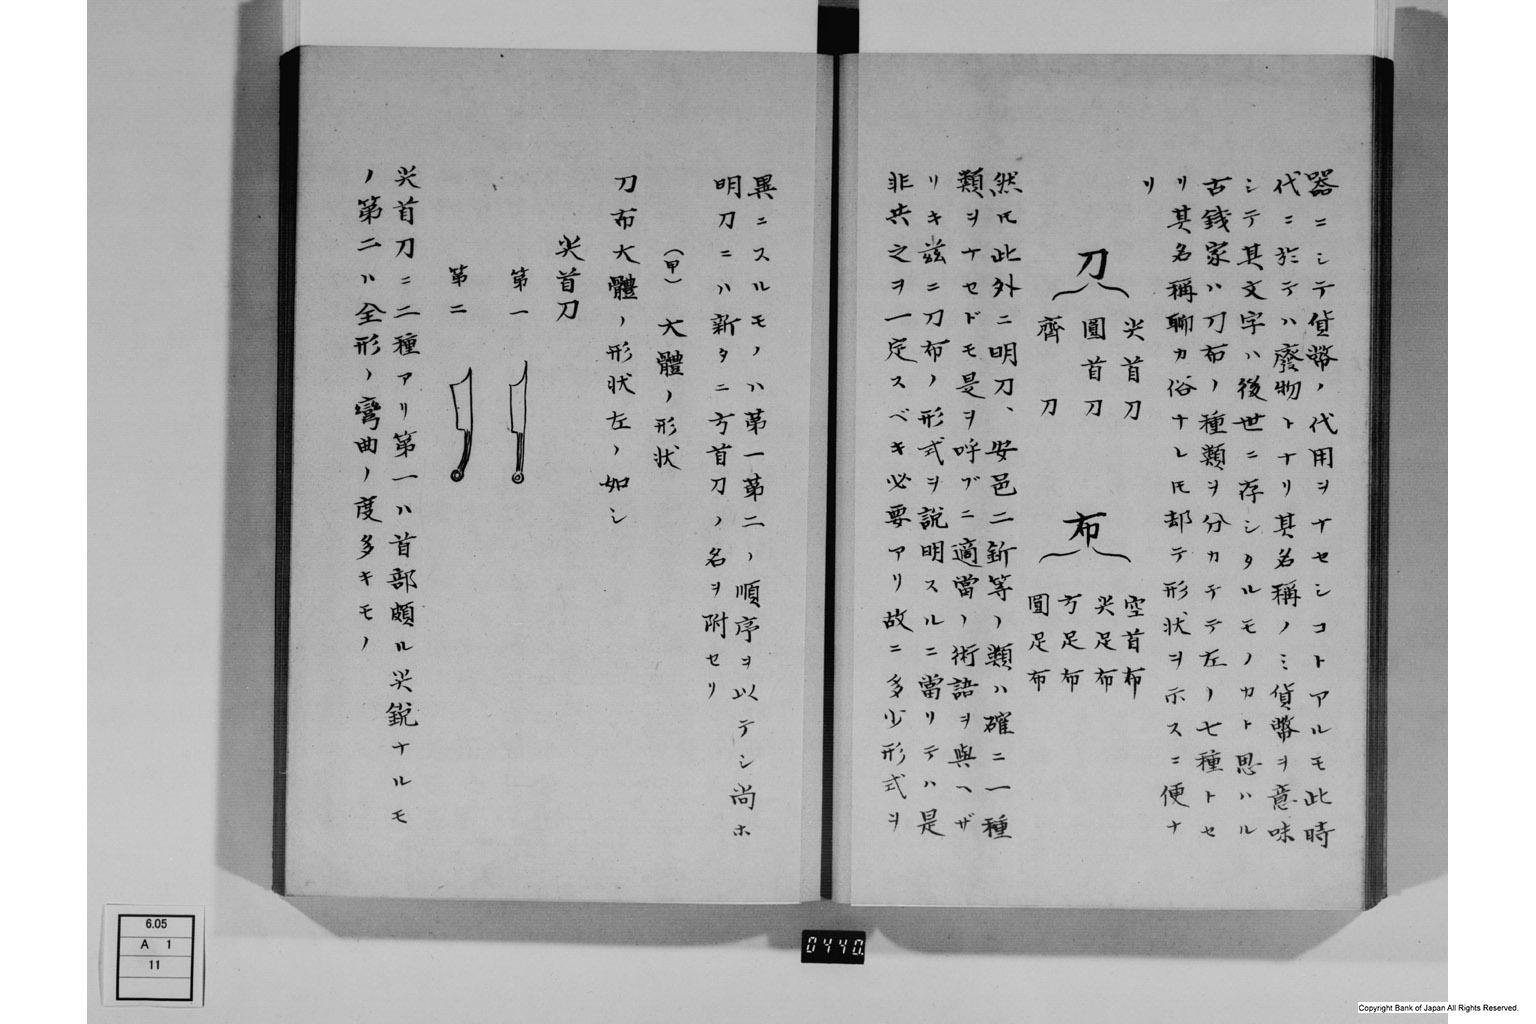 器ニシテ貨幣ノ代用ヲナセシコトアルモ此時
代ニ於テハ廢物トナリ其名稱ノミ貨幣ヲ意味
シテ其文字ハ後世ニ存シタルモノカト思ハル
古錢家ハ刀布ノ種類ヲ分カチテ左ノ七種トセ
リ其名稱聊カ俗ナレ𪜈却テ形状ヲ示スニ便ナ
リ
刀
尖首刀
圓首刀
齊刀
布
空首布
尖足布
方足布
圓足布
然𪜈此外ニ明刀、安邑二釿等ノ類ハ確ニ一種
類ヲナセドモ是ヲ呼ブニ適當ノ術語ヲ與ヘザ
リキ茲ニ刀布ノ形式ヲ説明スルニ當リテハ是
非共之ヲ一定スベキ必要アリ故ニ多少形式ヲ
異ニスルモノハ第一第二ノ順序ヲ以テシ尚ホ
明刀ニハ新タニ方首刀ノ名ヲ附セリ
(甲) 大體ノ形状
刀布大體ノ形状左ノ如シ
尖首刀
第一
第二
尖首刀ニ二種アリ第一ハ首部頗ル尖鋭ナルモ
ノ第二ハ全形ノ彎曲ノ度多キモノ
6.05
A 1
11
0440
Copyright Bank of Japan All Rights Reserved.